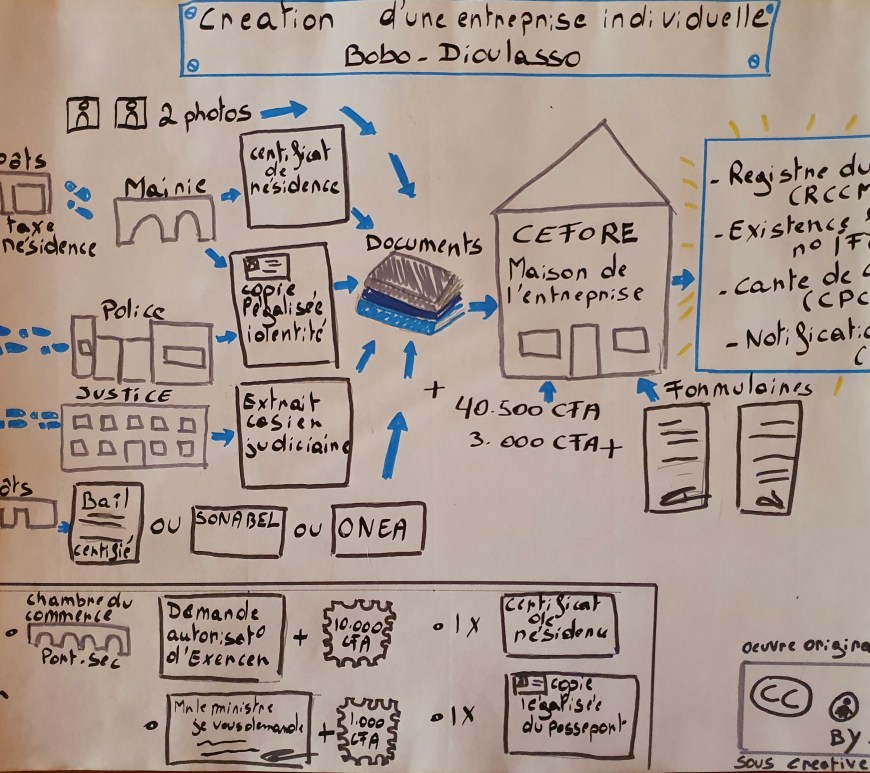 Creation d'une entreprise individuelle
Bobo-Dioulasso
2 photos
pôts
taxe
résidence
Mairie
certificat
de
résidence
Documents
copie
légalisée
identité
Police
JUSTICE
Extrait
casier
judiciaire
ôts
Bail
certifié
OU
SONABEL
OU
ONEA
CEFORE
Maison de
l'entreprise
+
40.500 CFA
3.000 CFA +
Formulaires
- Registre du
(RCCM
- Existence
n° IF
- Carte de
(CPC
- Notificatio
(
• Chambre du
commerce
Pont.sec
Demande
autorisat°
d'Exercer
+
10.000
CFA
• 1X
Certificat
de
résidence
• Mr le ministre
je vous demande
+
1.000
CFA
• 1X
copie
légalisée
du passeport
oeuvre origina
CC
BY
sous creative